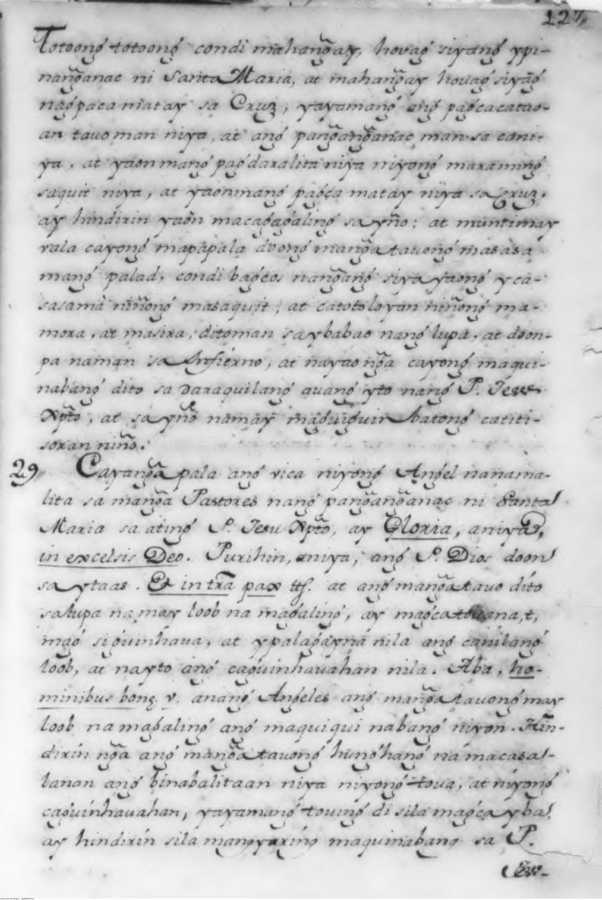 227,
Totoong totoong condi mahangay, hovag siyang ypi-
nanganac ni Santa Maria, at mahangay hovag siyag
nagpacamatay sa Cruz, yayamang ang pagcacatao-
an tavo man niya, at ang panganganac man sa cani-
ya, at yaon mang pagdaralita niya niyong maraming
saquit niya, at yaon mang pagca matay niya sa Cruz,
ay hindirin yaon macagagaling sa yño; at muntimay
vala cayong mapapala doong manga tavong masasa
mang palad, condi bagcos nangang siya yaong yca-
sasama niñong masaquit; at catotoloyan niñong ma-
mora, at masira, ditoman sa ybabao nang lupa, at doon-
pa naman sa Infierno, at nayaonga cayong maqui-
nabang dito sa Daraquilang avang yto nang P. Jesu
Xpto, at sa yño namay catiti-
soran niño.
29 Cayanga pala ang vica niyong Angel nanama-
lita sa manga Pastores nang panganganac ni Santa
Maria sa ating P. Jesu Xpto, ay Gloria, aniya,
in excelsis Deo. Purihin, aniya, ang P. Dios doon
sa ytaas. Et in trã pax ttſ. at ang manga tavo dito
sa lupa na may loob na magaling, ay
mag siguinhava, at ypalagayna nila ang canilang
loob, at nayto ang caguinhauahan nila. Aba, ho-
minibus bonę v. anang Angeles ang manga tavong may
loob na magaling ang maquiquinabang niyon. Hin-
dirin nga ang manga tavong hunghang na macasa-
lanan ang binabalitaan niya niyong tova, at niyong
caguinhauahan, yayamang toving di sila magcayba,
ay hindirin sila mangyaring maquinabang sa P.
Jesu-